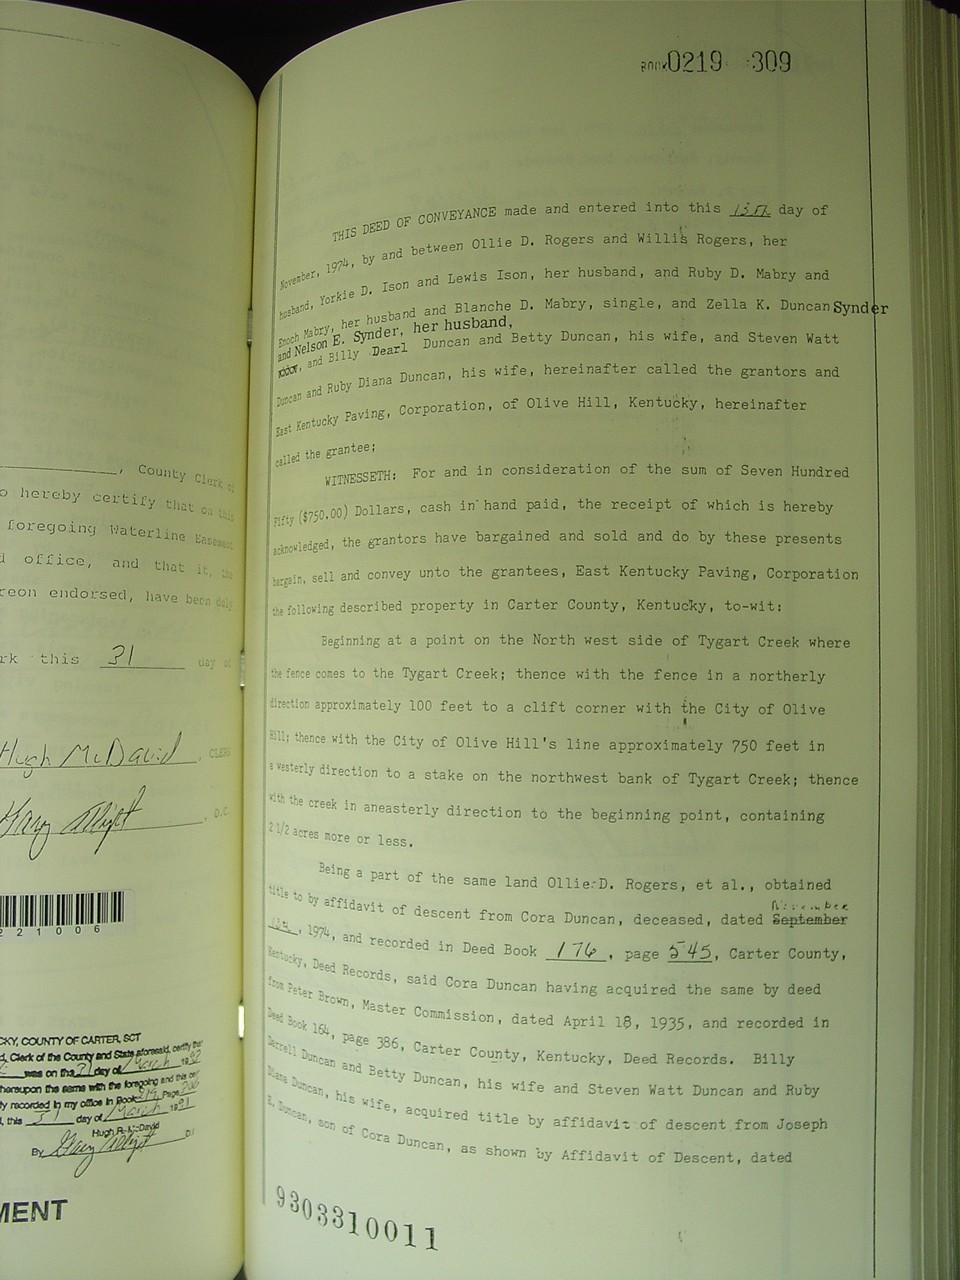 , County Clerk of
o hereby certify that on this
foregoing Waterline Easement
d office, and that it, the
reon endorsed, have been duly
rk this 31 day of
Hugh McDavid, CLERK
, D.C.
221006
KY, COUNTY OF CARTER, SCT
d, Clerk of the County and State aforesaid, certify that
was on the 31 day of March 19
hereupon the same with the foregoing and this cer
ly recorded in my office in Book 219 Page
, this 31 day of March 19
Hugh R. McDavid
By D.C.
MENT
BOOK 0219 309
THIS DEED OF CONVEYANCE made and entered into this 15th day of
November, 1974, by and between Ollie D. Rogers and Willis Rogers, her
husband, Yorkie D. Ison and Lewis Ison, her husband, and Ruby D. Mabry and
Enoch Mabry, her husband and Blanche D. Mabry, single, and Zella K. Duncan Synder
and Nelson E. Synder, her husband,
and Billy Dearl Duncan and Betty Duncan, his wife, and Steven Watt
Duncan and Ruby Diana Duncan, his wife, hereinafter called the grantors and
East Kentucky Paving, Corporation, of Olive Hill, Kentucky, hereinafter
called the grantee;
WITNESSETH: For and in consideration of the sum of Seven Hundred
Fifty ($750.00) Dollars, cash in hand paid, the receipt of which is hereby
acknowledged, the grantors have bargained and sold and do by these presents
bargain, sell and convey unto the grantees, East Kentucky Paving, Corporation
the following described property in Carter County, Kentucky, to-wit:
Beginning at a point on the North west side of Tygart Creek where
the fence comes to the Tygart Creek; thence with the fence in a northerly
direction approximately 100 feet to a clift corner with the City of Olive
Hill; thence with the City of Olive Hill's line approximately 750 feet in
a westerly direction to a stake on the northwest bank of Tygart Creek; thence
with the creek in aneasterly direction to the beginning point, containing
2 1/2 acres more or less.
Being a part of the same land Ollie D. Rogers, et al., obtained
November
title to by affidavit of descent from Cora Duncan, deceased, dated September
, 1974, and recorded in Deed Book 176, page 545, Carter County,
Kentucky, Deed Records, said Cora Duncan having acquired the same by deed
from Peter Brown, Master Commission, dated April 18, 1935, and recorded in
Deed Book 164, page 386, Carter County, Kentucky, Deed Records. Billy
Derrell Duncan and Betty Duncan, his wife and Steven Watt Duncan and Ruby
Diana Duncan, his wife, acquired title by affidavit of descent from Joseph
E. Duncan, son of Cora Duncan, as shown by Affidavit of Descent, dated
9303310011